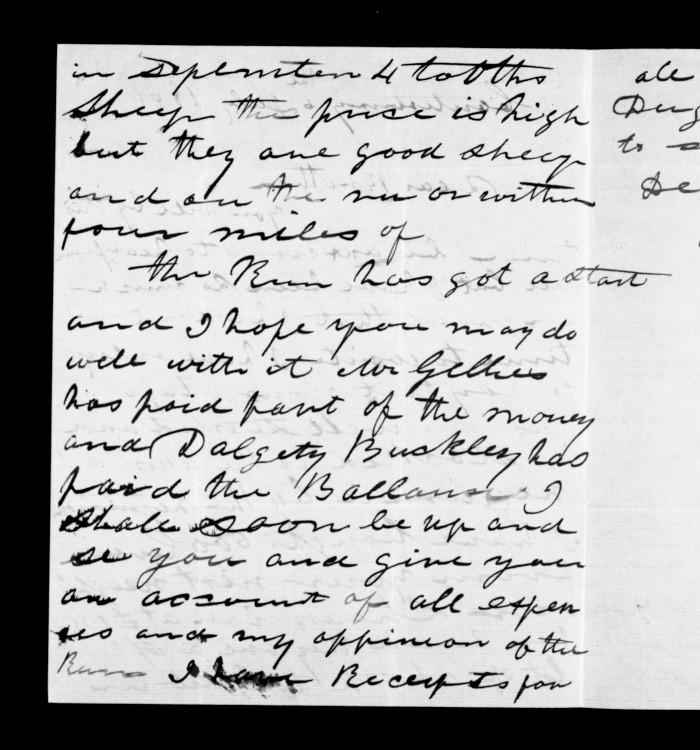 in Sepemten 4 tobths
Sheep the prise is high
but they are good sheep
and on the run or within
four miles of
the Run has got a start
and I hope youre may do
well with it Mr Gellies
has paid part of the money
and Dalgety Buckley has
paid the Ballanse I
shall soon be up and
se you and give you
an account of all expen
ses and my oppinion of the
Run I have Recepts for
all
to